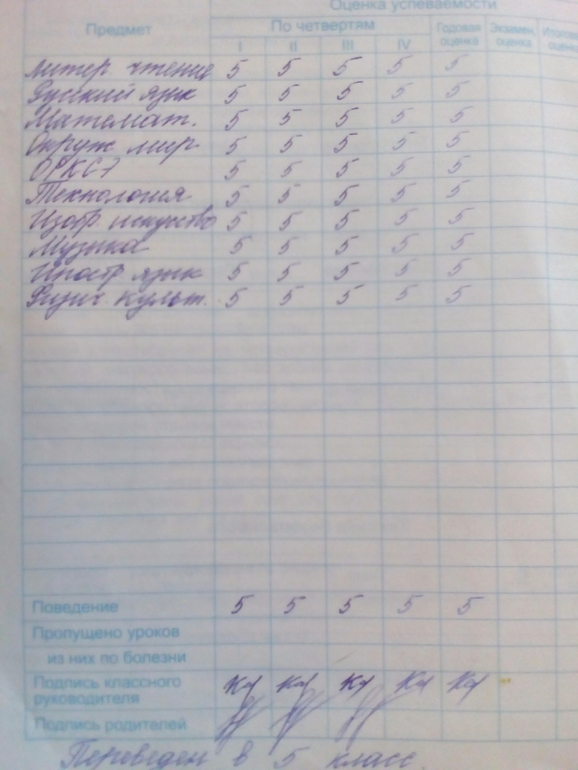 Оценка успеваемости
Предмет По четвертям Годовая оценка Экзамен. оценка Итогов оценк
I II III IV
Литер чтение 5 5 5 5 5
Русский язык 5 5 5 5 5
Математ. 5 5 5 5 5
Окруж. мир 5 5 5 5 5
ОРКСЭ 5 5 5 5 5
Технология 5 5 5 5 5
Изобр. искусство 5 5 5 5 5
Музыка 5 5 5 5 5
Иностр. язык 5 5 5 5 5
Физич. культ. 5 5 5 5 5
Поведение 5 5 5 5 5
Пропущено уроков
из них по болезни
Подпись классного
руководителя
Подпись родителей
Переведен в 5 класс.